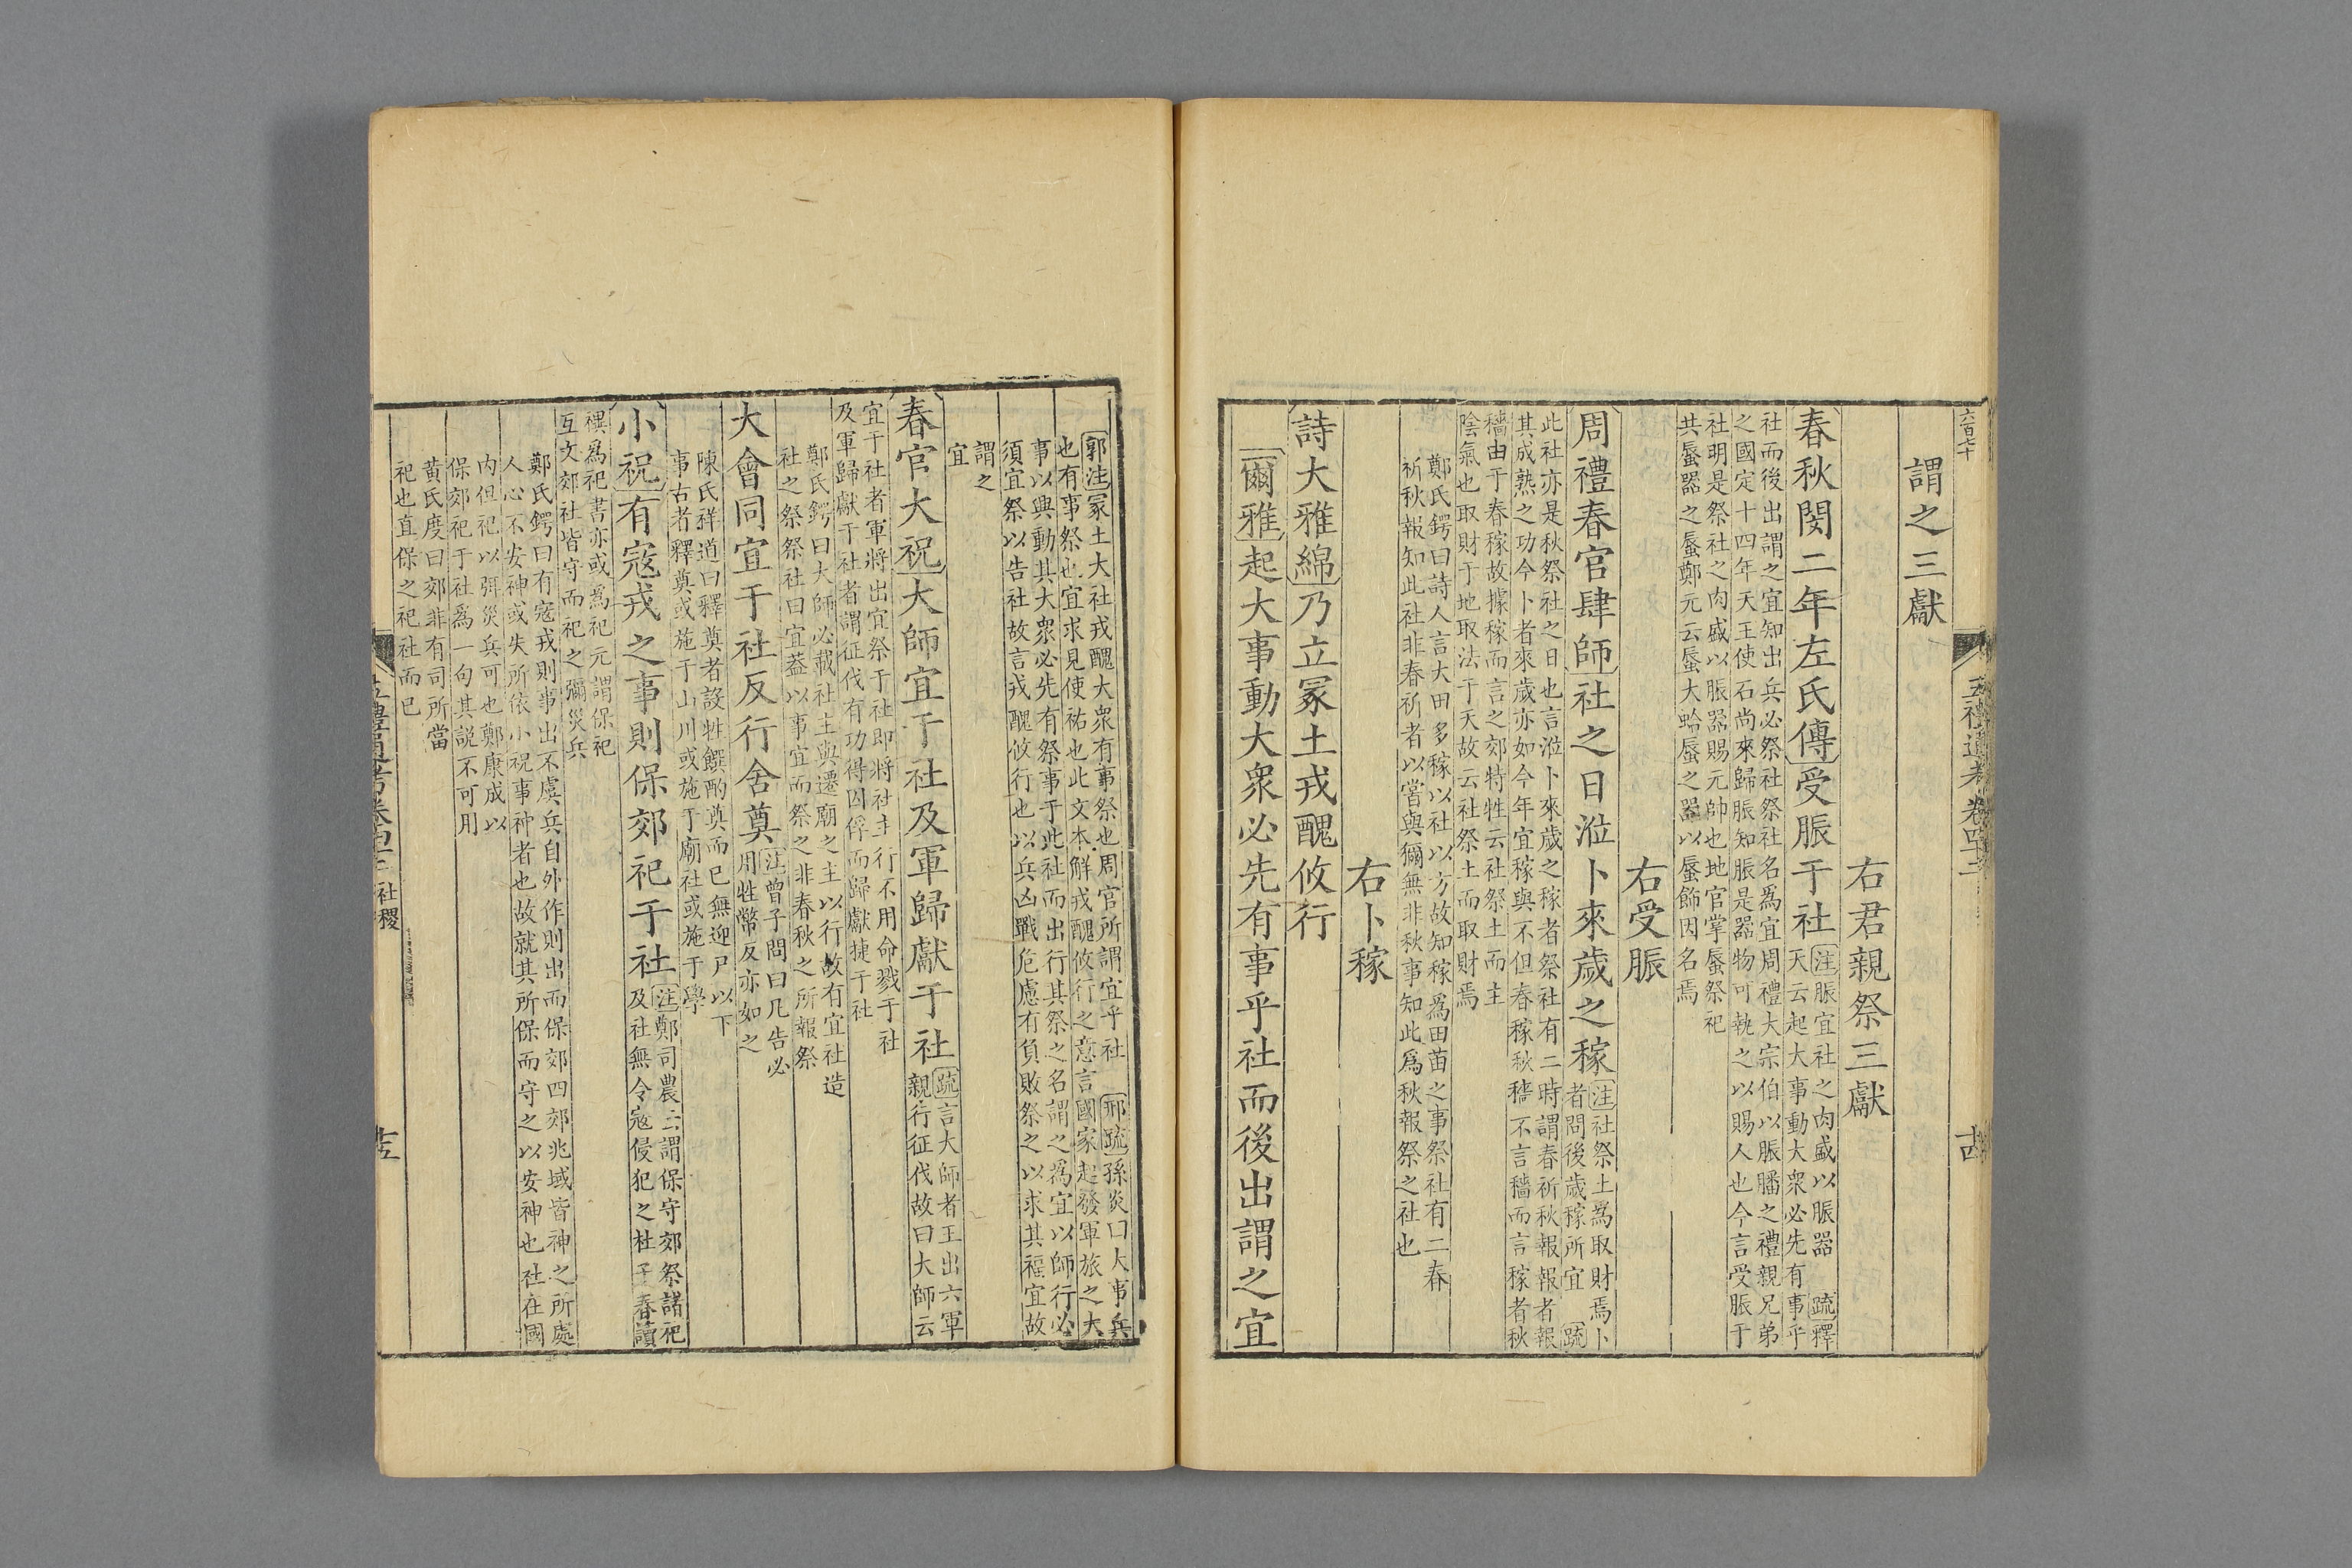 六百七十
五禮通考卷四十二
十四
謂之三獻
右君親祭三獻
春秋閔二年左氏傳受脤于社注脤宜社之肉盛以脤器 疏釋
天云起大事動大衆必先有事乎
社而後出謂之宜知出兵必祭社祭社名爲宜周禮大宗伯以脤膰之禮親兄弟
之國定十四年天王使石尚來歸脤知脤是器物可執之以賜人也今言受脤于
社明是祭社之肉盛以脤器賜元帥也地官掌蜃祭祀
共蜃器之蜃鄭元云蜃大蛤蜃之器以蜃飾因名焉
右受脤
周禮春官肆師社之日涖卜來歲之稼注社祭土爲取財焉卜
者問後歲稼所宜 疏
此社亦是秋祭社之日也言涖卜來歲之稼者祭社有二時謂春祈秋報報者報
其成熟之功今卜者來歲亦如今年宜稼與不但春稼秋穡不言穡而言稼者秋
穡由于春稼故據稼而言之郊特牲云社祭土而主
陰氣也取財于地取法于天故云社祭土而取財焉
鄭氏鍔曰詩人言大田多稼以社以方故知稼爲田苗之事祭社有二春
祈秋報知此社非春祈者以嘗與獮無非秋事知此爲秋報祭之社也
右卜稼
詩大雅綿乃立冢土戎醜攸行
爾雅起大事動大衆必先有事乎社而後出謂之宜
郭注冢土大社戎醜大衆有事祭也周官所謂宜乎社 邢疏孫炎曰大事兵
也有事祭也宜求見使祐也此文本解戎醜攸行之意言國家起發軍旅之大
事以興動其大衆必先有祭事于此社而出行其祭之名謂之爲宜以師行必
須宜祭以告社故言戎醜攸行也以兵凶戰危慮有負敗祭之以求其福宜故
謂之
宜
春官大祝大師宜于社及軍歸獻于社疏言大師者王出六軍
親行征伐故曰大師云
宜于社者軍將出宜祭于社即將社主行不用命戮于社
及軍歸獻于社者謂征伐有功得囚俘而歸獻捷于社
鄭氏鍔曰大師必載社主與遷廟之主以行故有宜社造
社之祭祭社曰宜葢以事宜而祭之非春秋之所報祭
大會同宜于社反行舍奠注曾子問曰凡告必
用牲幣反亦如之
陳氏祥道曰釋奠者設牲饌酌奠而已無迎尸以下
事古者釋奠或施于山川或施于廟社或施于學
小祝有寇戎之事則保郊祀于社注鄭司農云謂保守郊祭諸祀
及社無令寇侵犯之杜子春讀
禩爲祀書亦或爲祀元謂保祀
互文郊社皆守而祀之彌災兵
鄭氏鍔曰有寇戎則事出不虞兵自外作則出而保郊四郊兆域皆神之所處
人心不安神或失所依小祝事神者也故就其所保而守之以安神也社在國
內但祀以弭災兵可也鄭康成以
保郊祀于社爲一句其說不可用
黃氏度曰郊非有司所當
祀也直保之祀社而已
五禮通考卷四十二 社稷
十五